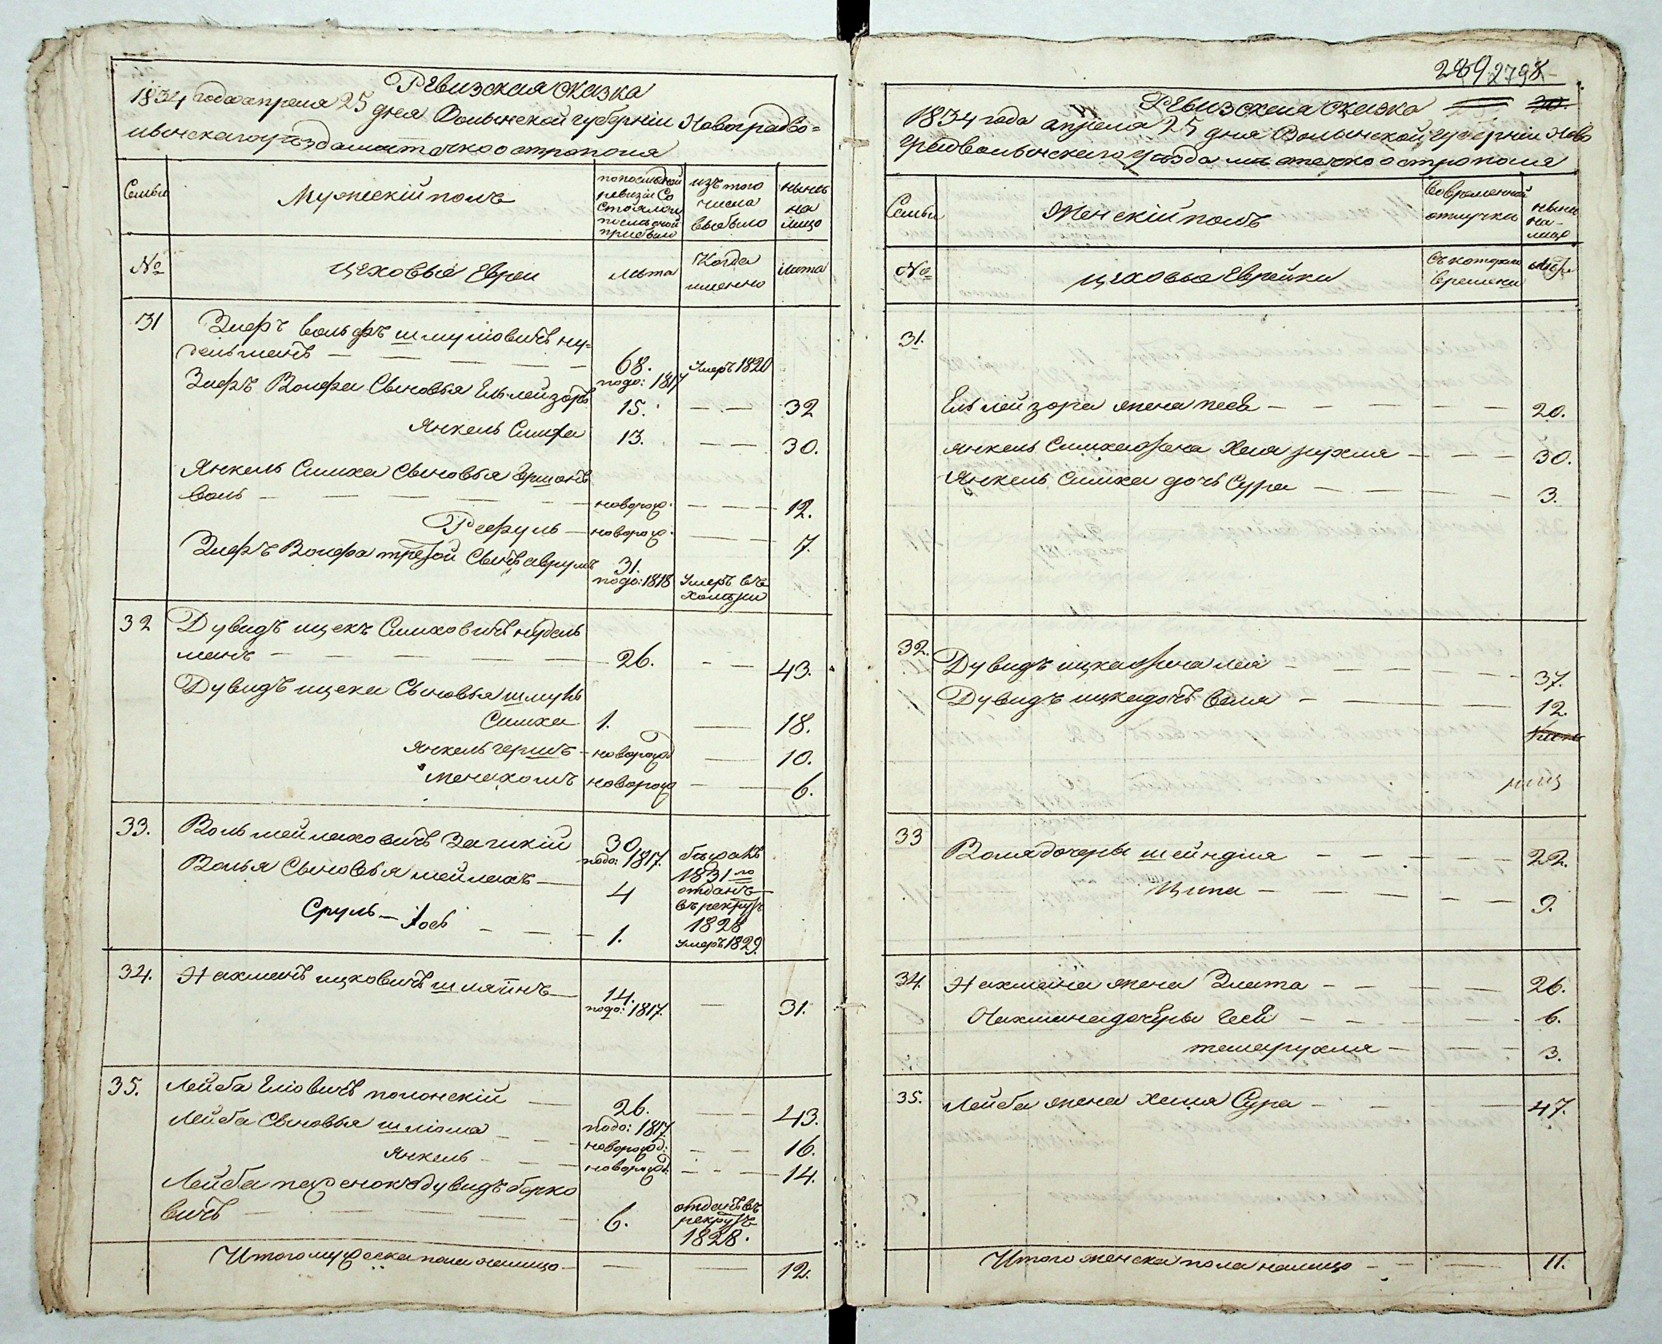 Ревизская сказка
1834 года апреля 25 дня Волынской губернiи Новоградво=
лынскаго уѣзда местечко острополя
Семьи
Мужескiй полъ
по последней
ревизiи со
стояло и
после оной
прибыло
изъ того
числа
выбыло
нынѣ
на
лицо
№
цеховые Евреи
лѣта
Когда
именно
лѣта
31
Зиефъ вольфъ шмулiовичъ ну=
дельманъ
68.
подо: 1817
умеръ 1820
Зиефъ Волфа Сыновья Ельлейзоръ
15.
32
Янкель Симха
13.
30.
Янкель Симха Сыновья Гершонъ
воль
новорож.
12.
Рефуль
новорож.
7.
Зиефъ Волфа третой Сынъ аврумъ
31.
подо: 1818
умеръ въ
32
Дувидъ ицекъ Симховичъ нудель
манъ
26.
43.
Дувидъ ицека Сыновья шмуль
Симха
1.
18.
Янкель гершъ
новорожд
10.
менахомъ
новорож
6.
33.
Воль мейлаховичъ Загскiй
30.
подо: 1817.
бѣжалъ
1831 го
Волья Сыновья мейлахъ
4
отданъ
въ рекруты
1828
Сруль-Iось
1.
умеръ 1829.
34.
Нахманъ ицковичъ шляпнъ
14.
подо: 1817.
31.
35.
Лейба Елiовичъ полонскiй
26.
подо: 1817
43.
Лейба Сыновья шлiома
новорожд:
16.
Янкель
новорожд:
14.
Лейба пасенокъ дувидъ берко
вичъ
6.
отданъ въ
рекруты
1828.
Итого мужеска пола налицо
12.
289 279 8
Ревизская сказка
30.
1834 года апреля 25 дня Волынской губернiи Ново
градволынскаго уѣзда местечко острополя
Семьи
Женскiй полъ
во временной
отлучки
ныне
на-
лицо
№
цеховые Еврейки
съ котораго
времени
лѣта
31.
Ельлейзора жена песя
20.
Янкель Симха жена Хая рухля
30.
Янкель Симха дочь Сура
3.
32.
Дувидъ ицка жена лея
37.
Дувидъ ицка дочь бейля
12
33
Воля дочеры шейндiля
22.
Ципа
9.
34.
Нахмана жена Злата
26.
Нахмана дочеры Геся
6.
темарухля
3.
35.
Лейба жена хася Сура
47.
Итого женска пола налицо
11.